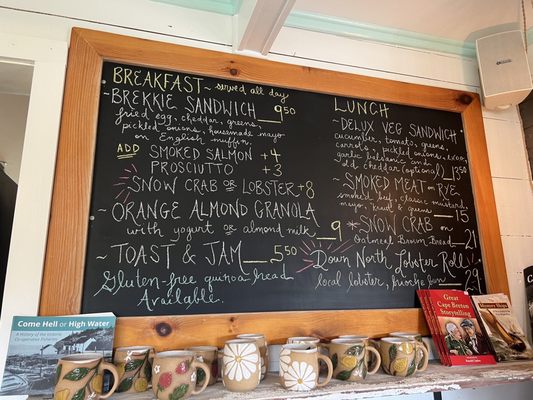 BREAKFAST ~ served all day
~ BREKKIE SANDWICH 9⁵⁰
fried egg, cheddar, greens,
pickled onions, housemade mayo
on English muffin.
ADD SMOKED SALMON +4
PROSCIUTTO +3
SNOW CRAB OR LOBSTER +8
~ ORANGE ALMOND GRANOLA
with yogurt or almond milk 9
~ TOAST & JAM 5⁵⁰
Gluten-free quinoa bread
Available.
LUNCH
~ DELUX VEG SANDWICH
cucumber, tomato, greens,
carrots, pickled onions,
garlic balsamic and
old cheddar (optional) 13⁵⁰
~ SMOKED MEAT on RYE
smoked beef, classic mustard,
mayo, kraut & greens 15
* SNOW CRAB on
Oatmeal Brown Bread 21
Down North Lobster Roll
local lobster, brioche bun 29
Come Hell or High Water
Great
Cape Breton
Storytelling